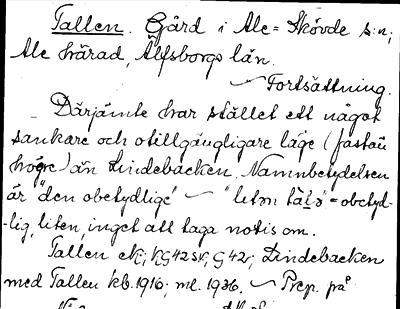 Tallen. Gård i Ale-Skövde s:n,
Ale härad, Älfsborgs län.
~ Fortsättning.
Därjämte har stället ett något
sankare och otillgängligare läge (fastän
högre) än Lindebacken. Namnbetydelsen
är "den obetydlige" ~ "liten = obetyd-
-lig, liten, inget att taga notis om.
Tallen ek; kG42sv, G42v, Lindebacken
med Tallen kb.1916; ml. 1936. ~ Prep. på